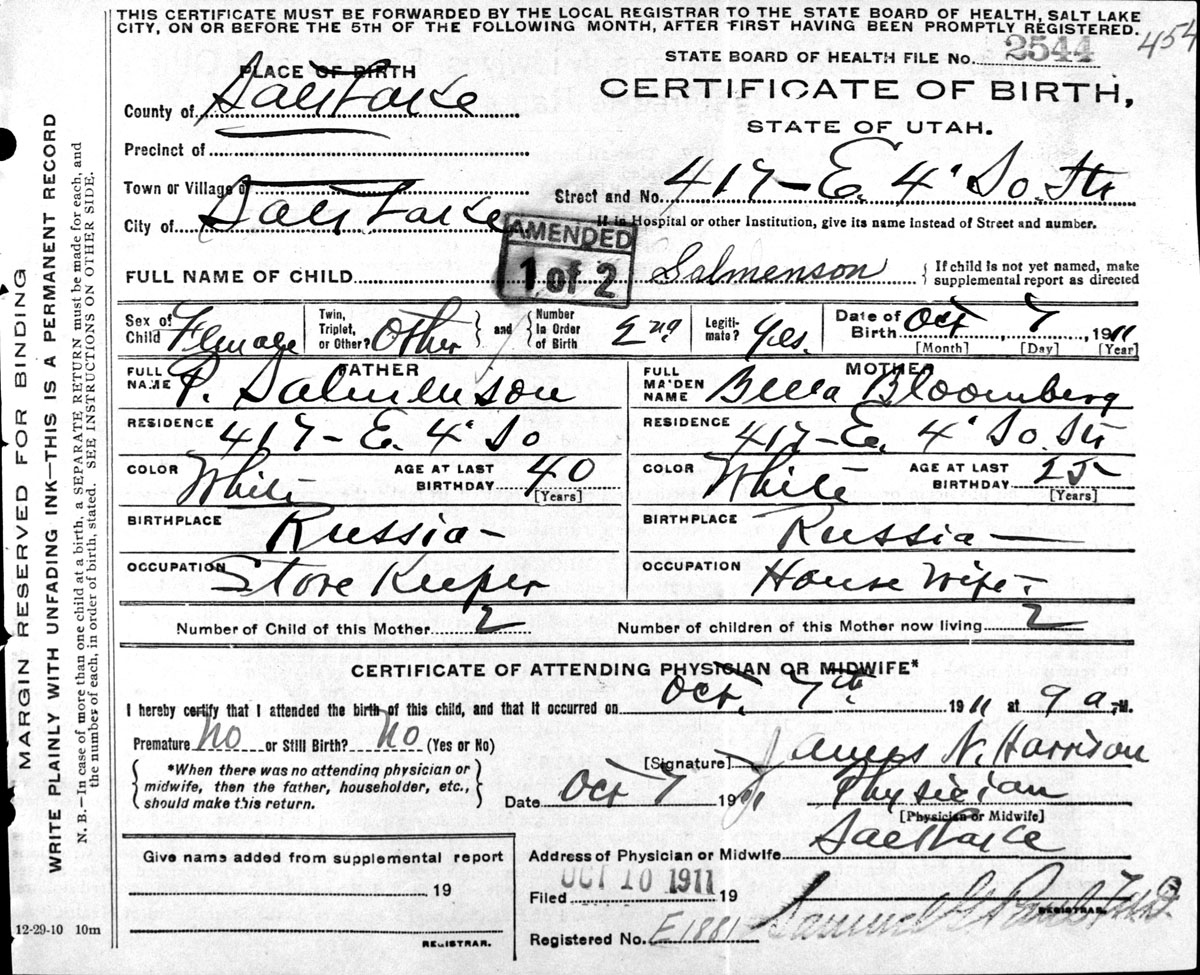 THIS CERTIFICATE MUST BE FORWARDED BY THE LOCAL REGISTRAR TO THE STATE BOARD OF HEALTH, SALT LAKE
CITY, ON OR BEFORE THE 5TH OF THE FOLLOWING MONTH, AFTER FIRST HAVING BEEN PROMPTLY REGISTERED.
454
STATE BOARD OF HEALTH FILE No. 2544
PLACE OF BIRTH
CERTIFICATE OF BIRTH,
STATE OF UTAH.
County of Salt Lake
Precinct of
Town or Village of
Street and No. 417 - E. 4' So. Str
City of Salt Lake
If in Hospital or other Institution, give its name instead of Street and number.
AMENDED
1 of 2
FULL NAME OF CHILD Salmenson
If child is not yet named, make
supplemental report as directed
Sex of Child Female
Twin, Triplet, or Other? Other
and Number In Order of Birth 2nd
Legitimate? Yes.
Date of Birth Oct 7, 1911
[Month] [Day] [Year]
FATHER
FULL NAME P. Salmenson
MOTHER
FULL MAIDEN NAME Bella Bloomberg
RESIDENCE 417 - E. 4' So
RESIDENCE 417 - E. 4' So. Str
COLOR White
AGE AT LAST BIRTHDAY 40
[Years]
COLOR White
AGE AT LAST BIRTHDAY 25
[Years]
BIRTHPLACE Russia -
BIRTHPLACE Russia -
OCCUPATION Store Keeper
OCCUPATION House Wife -
Number of Child of this Mother 2
Number of children of this Mother now living 2
CERTIFICATE OF ATTENDING PHYSICIAN OR MIDWIFE*
I hereby certify that I attended the birth of this child, and that it occurred on Oct. 7th, 1911 at 9 a. M.
Premature No or Still Birth? No (Yes or No)
*When there was no attending physician or
midwife, then the father, householder, etc.,
should make this return.
[Signature] James N. Harrison
Date Oct 7 1911
Physician
[Physician or Midwife]
Give name added from supplemental report
19
REGISTRAR.
Address of Physician or Midwife Salt Lake
Filed OCT 10 1911 19
REGISTRAR.
Registered No. E1881
12-29-10 10m
MARGIN RESERVED FOR BINDING
WRITE PLAINLY WITH UNFADING INK—THIS IS A PERMANENT RECORD
N. B.—In case of more than one child at a birth, a SEPARATE RETURN must be made for each, and
the number of each, in order of birth, stated. SEE INSTRUCTIONS ON OTHER SIDE.